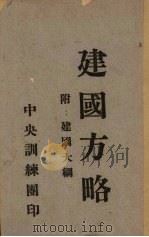 建國方略
附：建國大綱
中央訓練團印